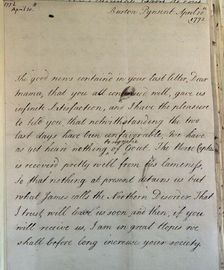 1772
April 10.th
Burton Pynsent April 10th
1772
The good news contained in your last letter, Dear
Mama, that you all continued well, gave us
infinite Satisfaction, and I have the pleasure
to tell you, that notwithstanding the two
last days have been unfavourable, We have
as yet hear nothing of Gout. The
is recover'd pretty well from his lameness,
So that nothing at present detains us but
what James calls the Northern Disorder. That
I trust will leave us soon, and then, if you
will receive us, I am in great Hopes we
shall before long increase your society.